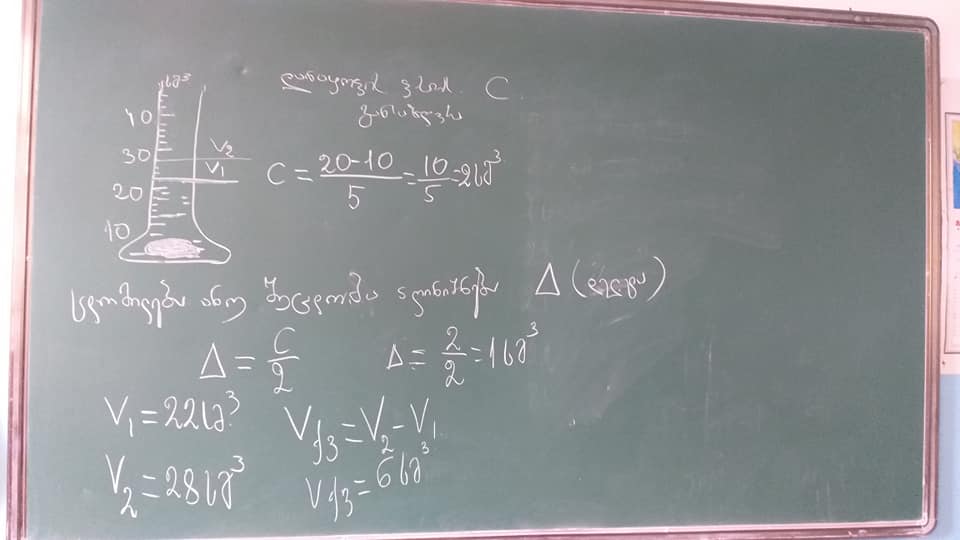 სმ³
40
30
20
10
V₂
V₁
დანაყოფის ფასი C
განსაზღვრა
C = (20-10)/5 = 10/5 = 2სმ³
ცდომილება ანუ შეცდომა აღინიშნება Δ (დელტა)
Δ = C/2    Δ = 2/2 = 1სმ³
V₁ = 22სმ³    Vსხ = V₂ - V₁
V₂ = 28სმ³    Vსხ = 6სმ³